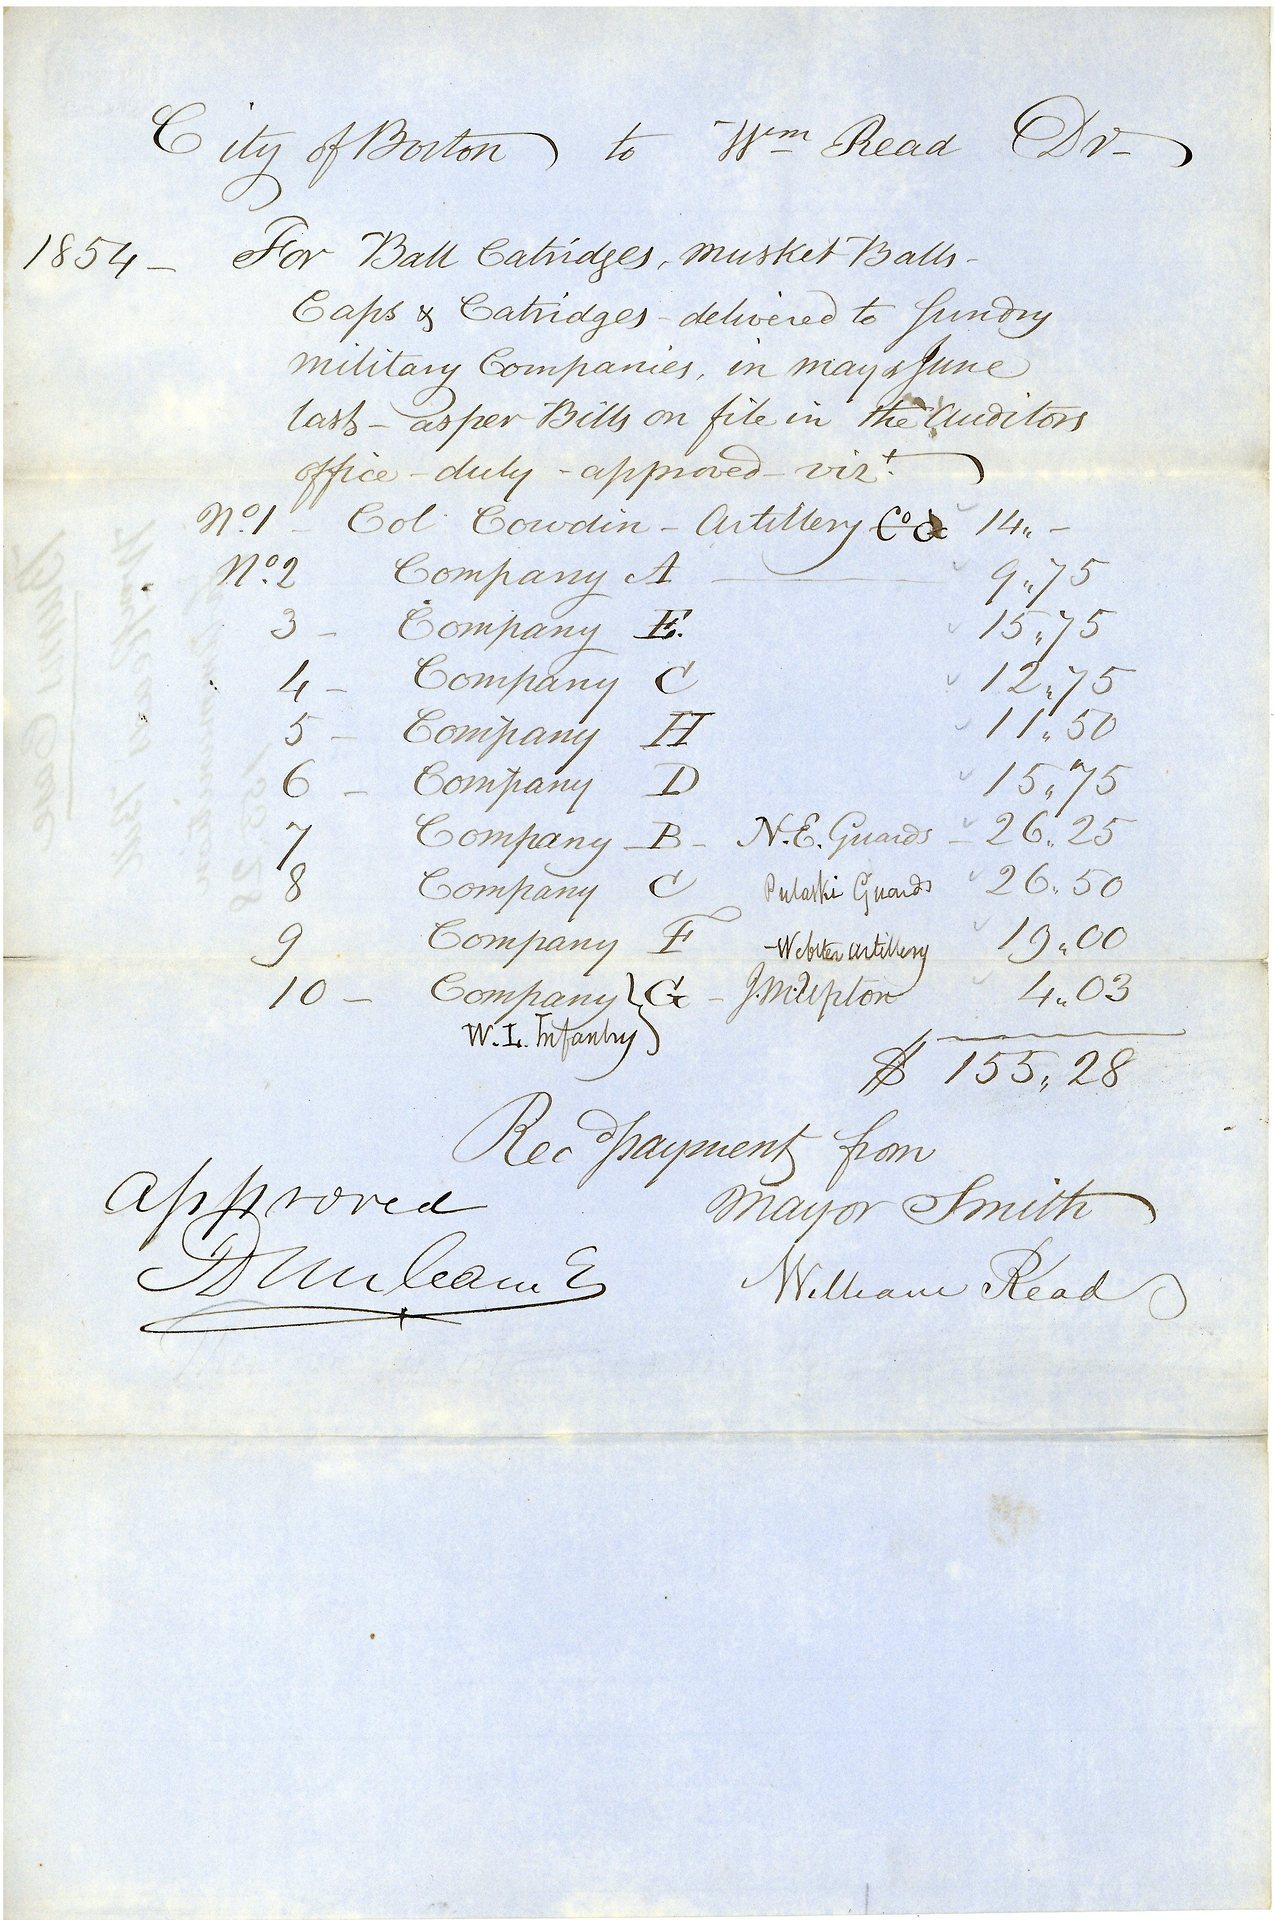 City of Boston to Wm Read Dr
1854 - For Ball Catridges, musket Balls -
Caps & Catridges - delivered to sundry
military Companies, in may & June
last - as per Bills on file in the Auditors
office - duly - approved - vizt
No. 1 - Col Cowdin - Artillery Co 14„ -
No. 2 Company A 9„75
3 - Company E. 15„75
4 - Company C 12„75
5 - Company H 11„50
6 - Company D 15„75
7 Company - B - N.E. Guards - 26„25
8 Company C Pulaski Guards 26„50
9 Company F - Webster Artillery 19„00
10 - Company } G - J.M. Upton 4„03
W. L. Infantry }
$ 155„28
Recd payment from
Approved
Mayor Smith
William Read